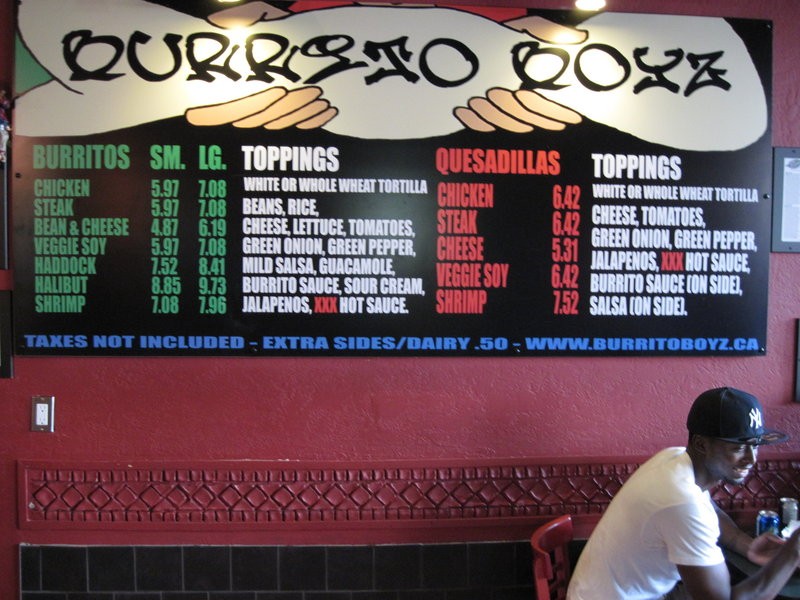 BURRITO BOYZ
BURRITOS SM. LG.
CHICKEN 5.97 7.08
STEAK 5.97 7.08
BEAN & CHEESE 4.87 6.19
VEGGIE SOY 5.97 7.08
HADDOCK 7.52 8.41
HALIBUT 8.85 9.73
SHRIMP 7.08 7.96
TOPPINGS
WHITE OR WHOLE WHEAT TORTILLA
BEANS, RICE,
CHEESE, LETTUCE, TOMATOES,
GREEN ONION, GREEN PEPPER,
MILD SALSA, GUACAMOLE,
BURRITO SAUCE, SOUR CREAM,
JALAPENOS, XXX HOT SAUCE.
QUESADILLAS
CHICKEN 6.42
STEAK 6.42
CHEESE 5.31
VEGGIE SOY 6.42
SHRIMP 7.52
TOPPINGS
WHITE OR WHOLE WHEAT TORTILLA
CHEESE, TOMATOES,
GREEN ONION, GREEN PEPPER,
JALAPENOS, XXX HOT SAUCE,
BURRITO SAUCE (ON SIDE),
SALSA (ON SIDE).
TAXES NOT INCLUDED - EXTRA SIDES/DAIRY .50 - WWW.BURRITOBOYZ.CA
NY